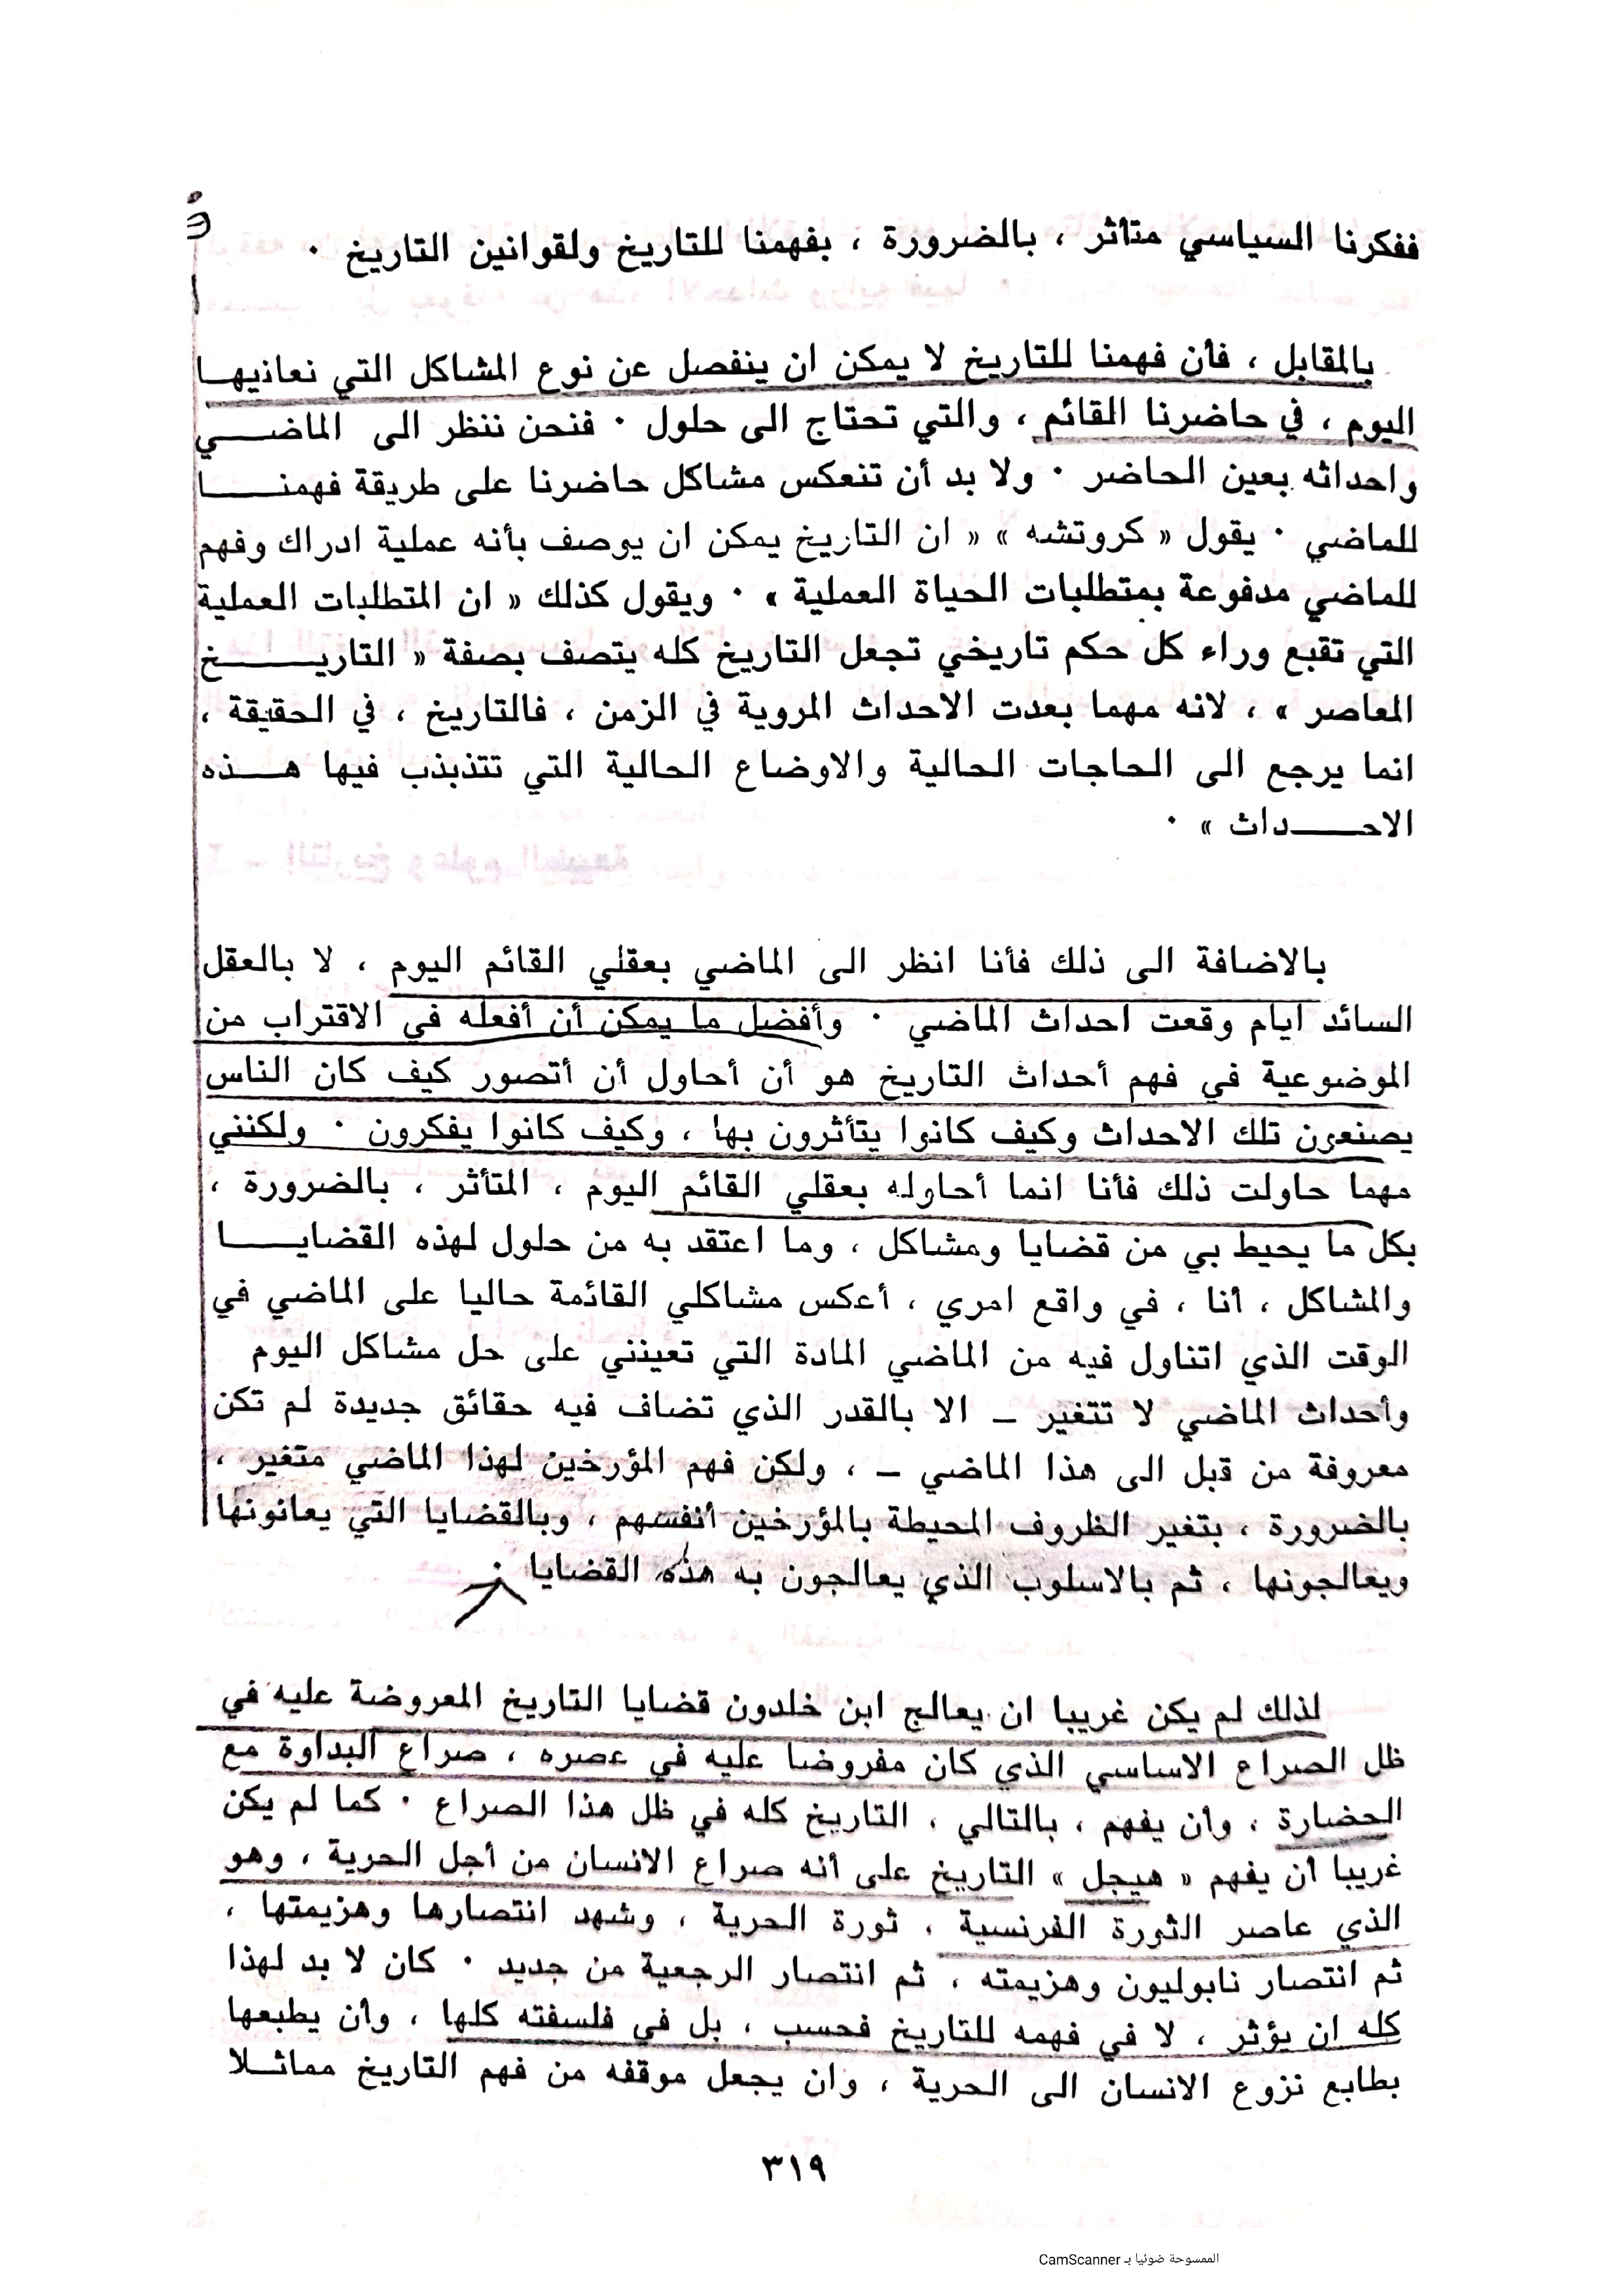 ففكرنا السياسي متأثر ، بالضرورة ، بفهمنا للتاريخ ولقوانين التاريخ ٠
بالمقابل ، فأن فهمنا للتاريخ لا يمكن ان ينفصل عن نوع المشاكل التي نعانيهــا
اليوم ، في حاضرنا القائم ، والتي تحتاج الى حلول ٠ فنحن ننظر الى الماضــــي
واحداثه بعين الحاضر ٠ ولا بد أن تنعكس مشاكل حاضرنا على طريقة فهمنــــا
للماضي ٠ يقول « كروتشه » « ان التاريخ يمكن ان يوصف بأنه عملية ادراك وفهم
للماضي مدفوعة بمتطلبات الحياة العملية » ٠ ويقول كذلك « ان المتطلبات العملية
التي تقبع وراء كل حكم تاريخي تجعل التاريخ كله يتصف بصفة « التاريــــــخ
المعاصر » ، لانه مهما بعدت الاحداث المروية في الزمن ، فالتاريخ ، في الحقيقة ،
انما يرجع الى الحاجات الحالية والاوضاع الحالية التي تتذبذب فيها هـــذه
الاحــــداث » ٠
بالاضافة الى ذلك فأنا انظر الى الماضي بعقلي القائم اليوم ، لا بالعقل
السائد ايام وقعت احداث الماضي ٠ وأفضل ما يمكن أن أفعله في الاقتراب من
الموضوعية في فهم أحداث التاريخ هو أن أحاول أن أتصور كيف كان الناس
يصنعون تلك الاحداث وكيف كانوا يتأثرون بها ، وكيف كانوا يفكرون ٠ ولكنني
مهما حاولت ذلك فأنا انما أحاوله بعقلي القائم اليوم ، المتأثر ، بالضرورة ،
بكل ما يحيط بي من قضايا ومشاكل ، وما اعتقد به من حلول لهذه القضايــــا
والمشاكل ، أنا ، في واقع امري ، أعكس مشاكلي القائمة حاليا على الماضي في
الوقت الذي اتناول فيه من الماضي المادة التي تعينني على حل مشاكل اليوم
وأحداث الماضي لا تتغير ـ الا بالقدر الذي تضاف فيه حقائق جديدة لم تكن
معروفة من قبل الى هذا الماضي ـ ، ولكن فهم المؤرخين لهذا الماضي متغير ،
بالضرورة ، بتغير الظروف المحيطة بالمؤرخين أنفسهم ، وبالقضايا التي يعانونها
ويعالجونها ، ثم بالاسلوب الذي يعالجون به هذه القضايا ٠
لذلك لم يكن غريبا ان يعالج ابن خلدون قضايا التاريخ المعروضة عليه في
ظل الصراع الاساسي الذي كان مفروضا عليه في عصره ، صراع البداوة مع
الحضارة ، وأن يفهم ، بالتالي ، التاريخ كله في ظل هذا الصراع ٠ كما لم يكن
غريبا أن يفهم « هيجل » التاريخ على أنه صراع الانسان من أجل الحرية ، وهو
الذي عاصر الثورة الفرنسية ، ثورة الحرية ، وشهد انتصارها وهزيمتها ،
ثم انتصار نابوليون وهزيمته ، ثم انتصار الرجعية من جديد ٠ كان لا بد لهذا
كله ان يؤثر ، لا في فهمه للتاريخ فحسب ، بل في فلسفته كلها ، وأن يطبعها
بطابع نزوع الانسان الى الحرية ، وان يجعل موقفه من فهم التاريخ مماثــلا
٣١٩
الممسوحة ضوئيا بـ CamScanner